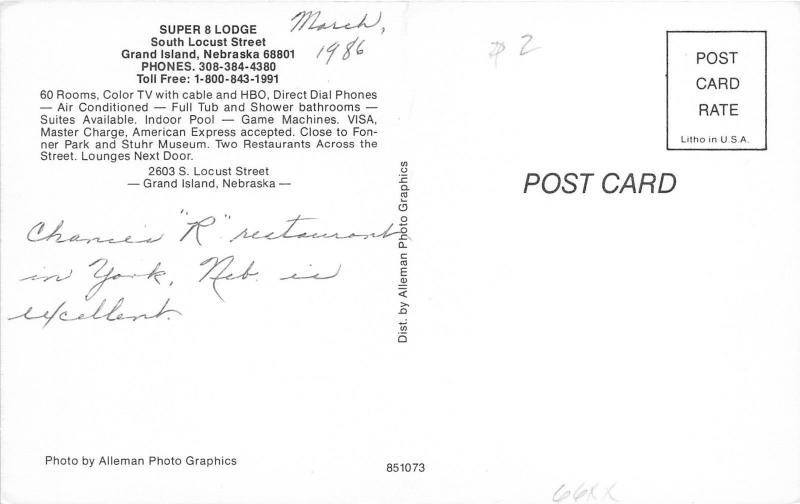 SUPER 8 LODGE
South Locust Street
Grand Island, Nebraska 68801
PHONES. 308-384-4380
Toll Free: 1-800-843-1991
March,
1986
60 Rooms, Color TV with cable and HBO, Direct Dial Phones
— Air Conditioned — Full Tub and Shower bathrooms —
Suites Available. Indoor Pool — Game Machines. VISA,
Master Charge, American Express accepted. Close to Fon-
ner Park and Stuhr Museum. Two Restaurants Across the
Street. Lounges Next Door.
2603 S. Locust Street
— Grand Island, Nebraska —
Chances "R" restaurant
in York, Neb. is
excellent.
Photo by Alleman Photo Graphics
Dist. by Alleman Photo Graphics
851073
# 2
POST
CARD
RATE
Litho in U.S.A.
POST CARD
66XX